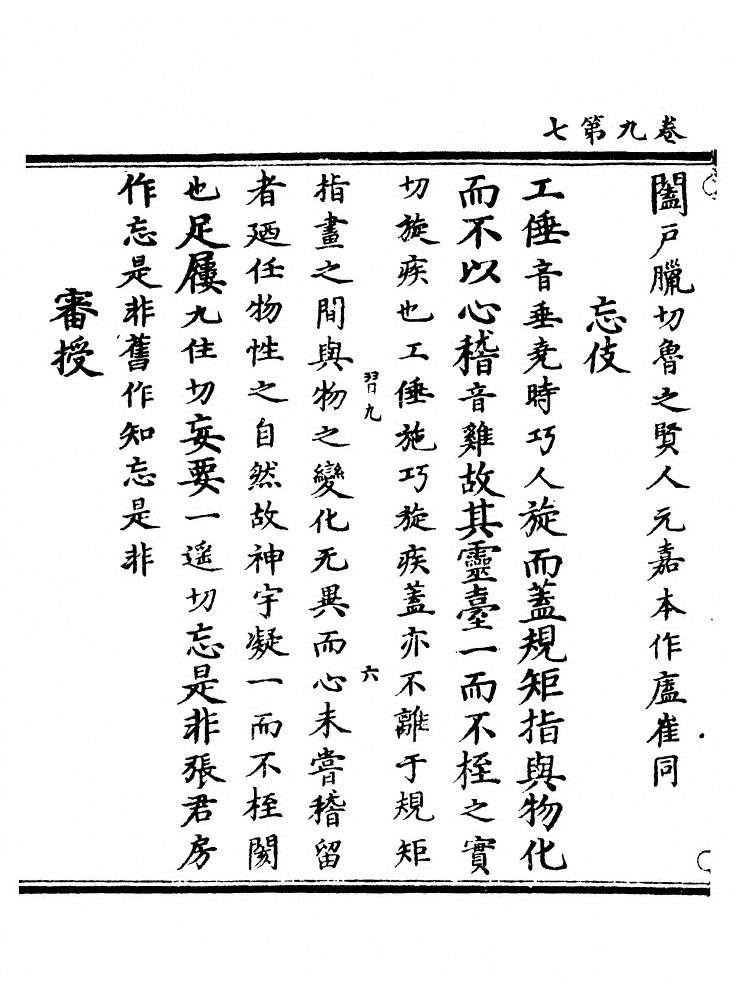 卷九第七
闔戶臘切魯之賢人元嘉本作廬崔同
忘伎
工倕音垂堯時巧人旋而蓋規矩指與物化
而不以心稽音雞故其靈臺一而不桎之實
切旋疾也工倕施巧旋疾蓋亦不離于規矩
習九
六
指畫之間與物之變化无異而心未嘗稽留
者廼任物性之自然故神宇凝一而不桎閡
也足屨九住切妄要一遥切忘是非張君房
作忘是非舊作知忘是非
審授